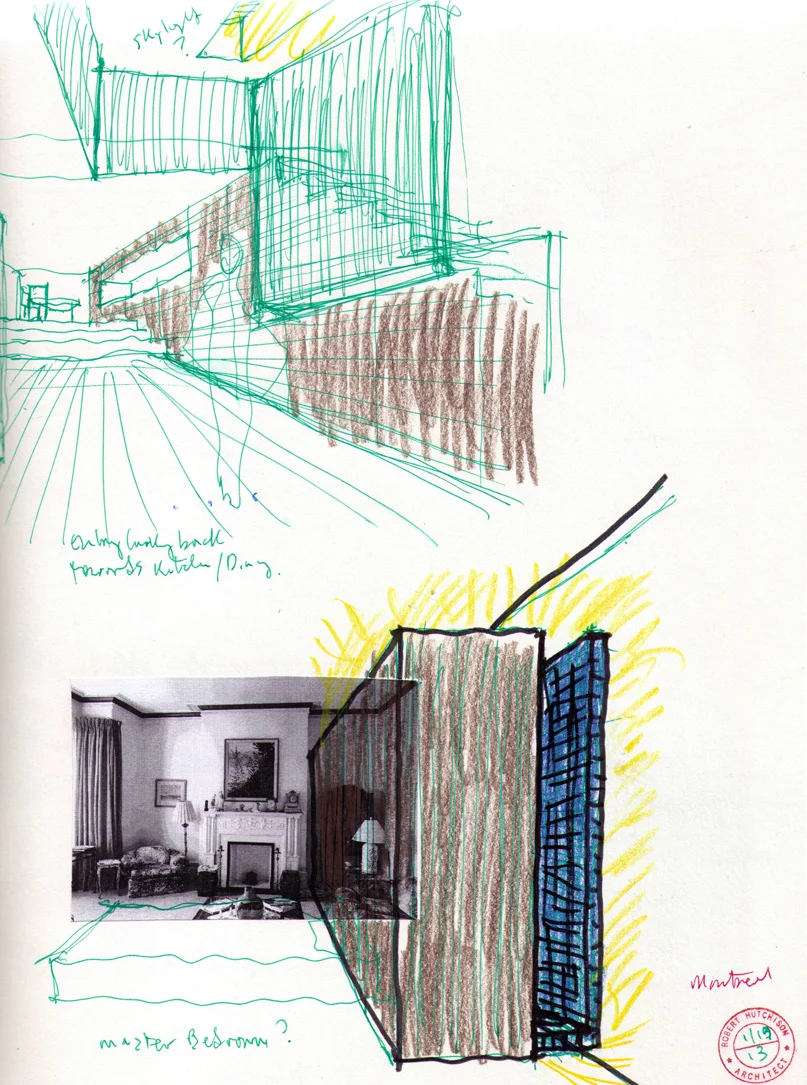 skylight
?
Entry looking back
towards Kitchen/Dining.
master Bedroom?
Montreal
ROBERT HUTCHISON
1/19
13
ARCHITECT